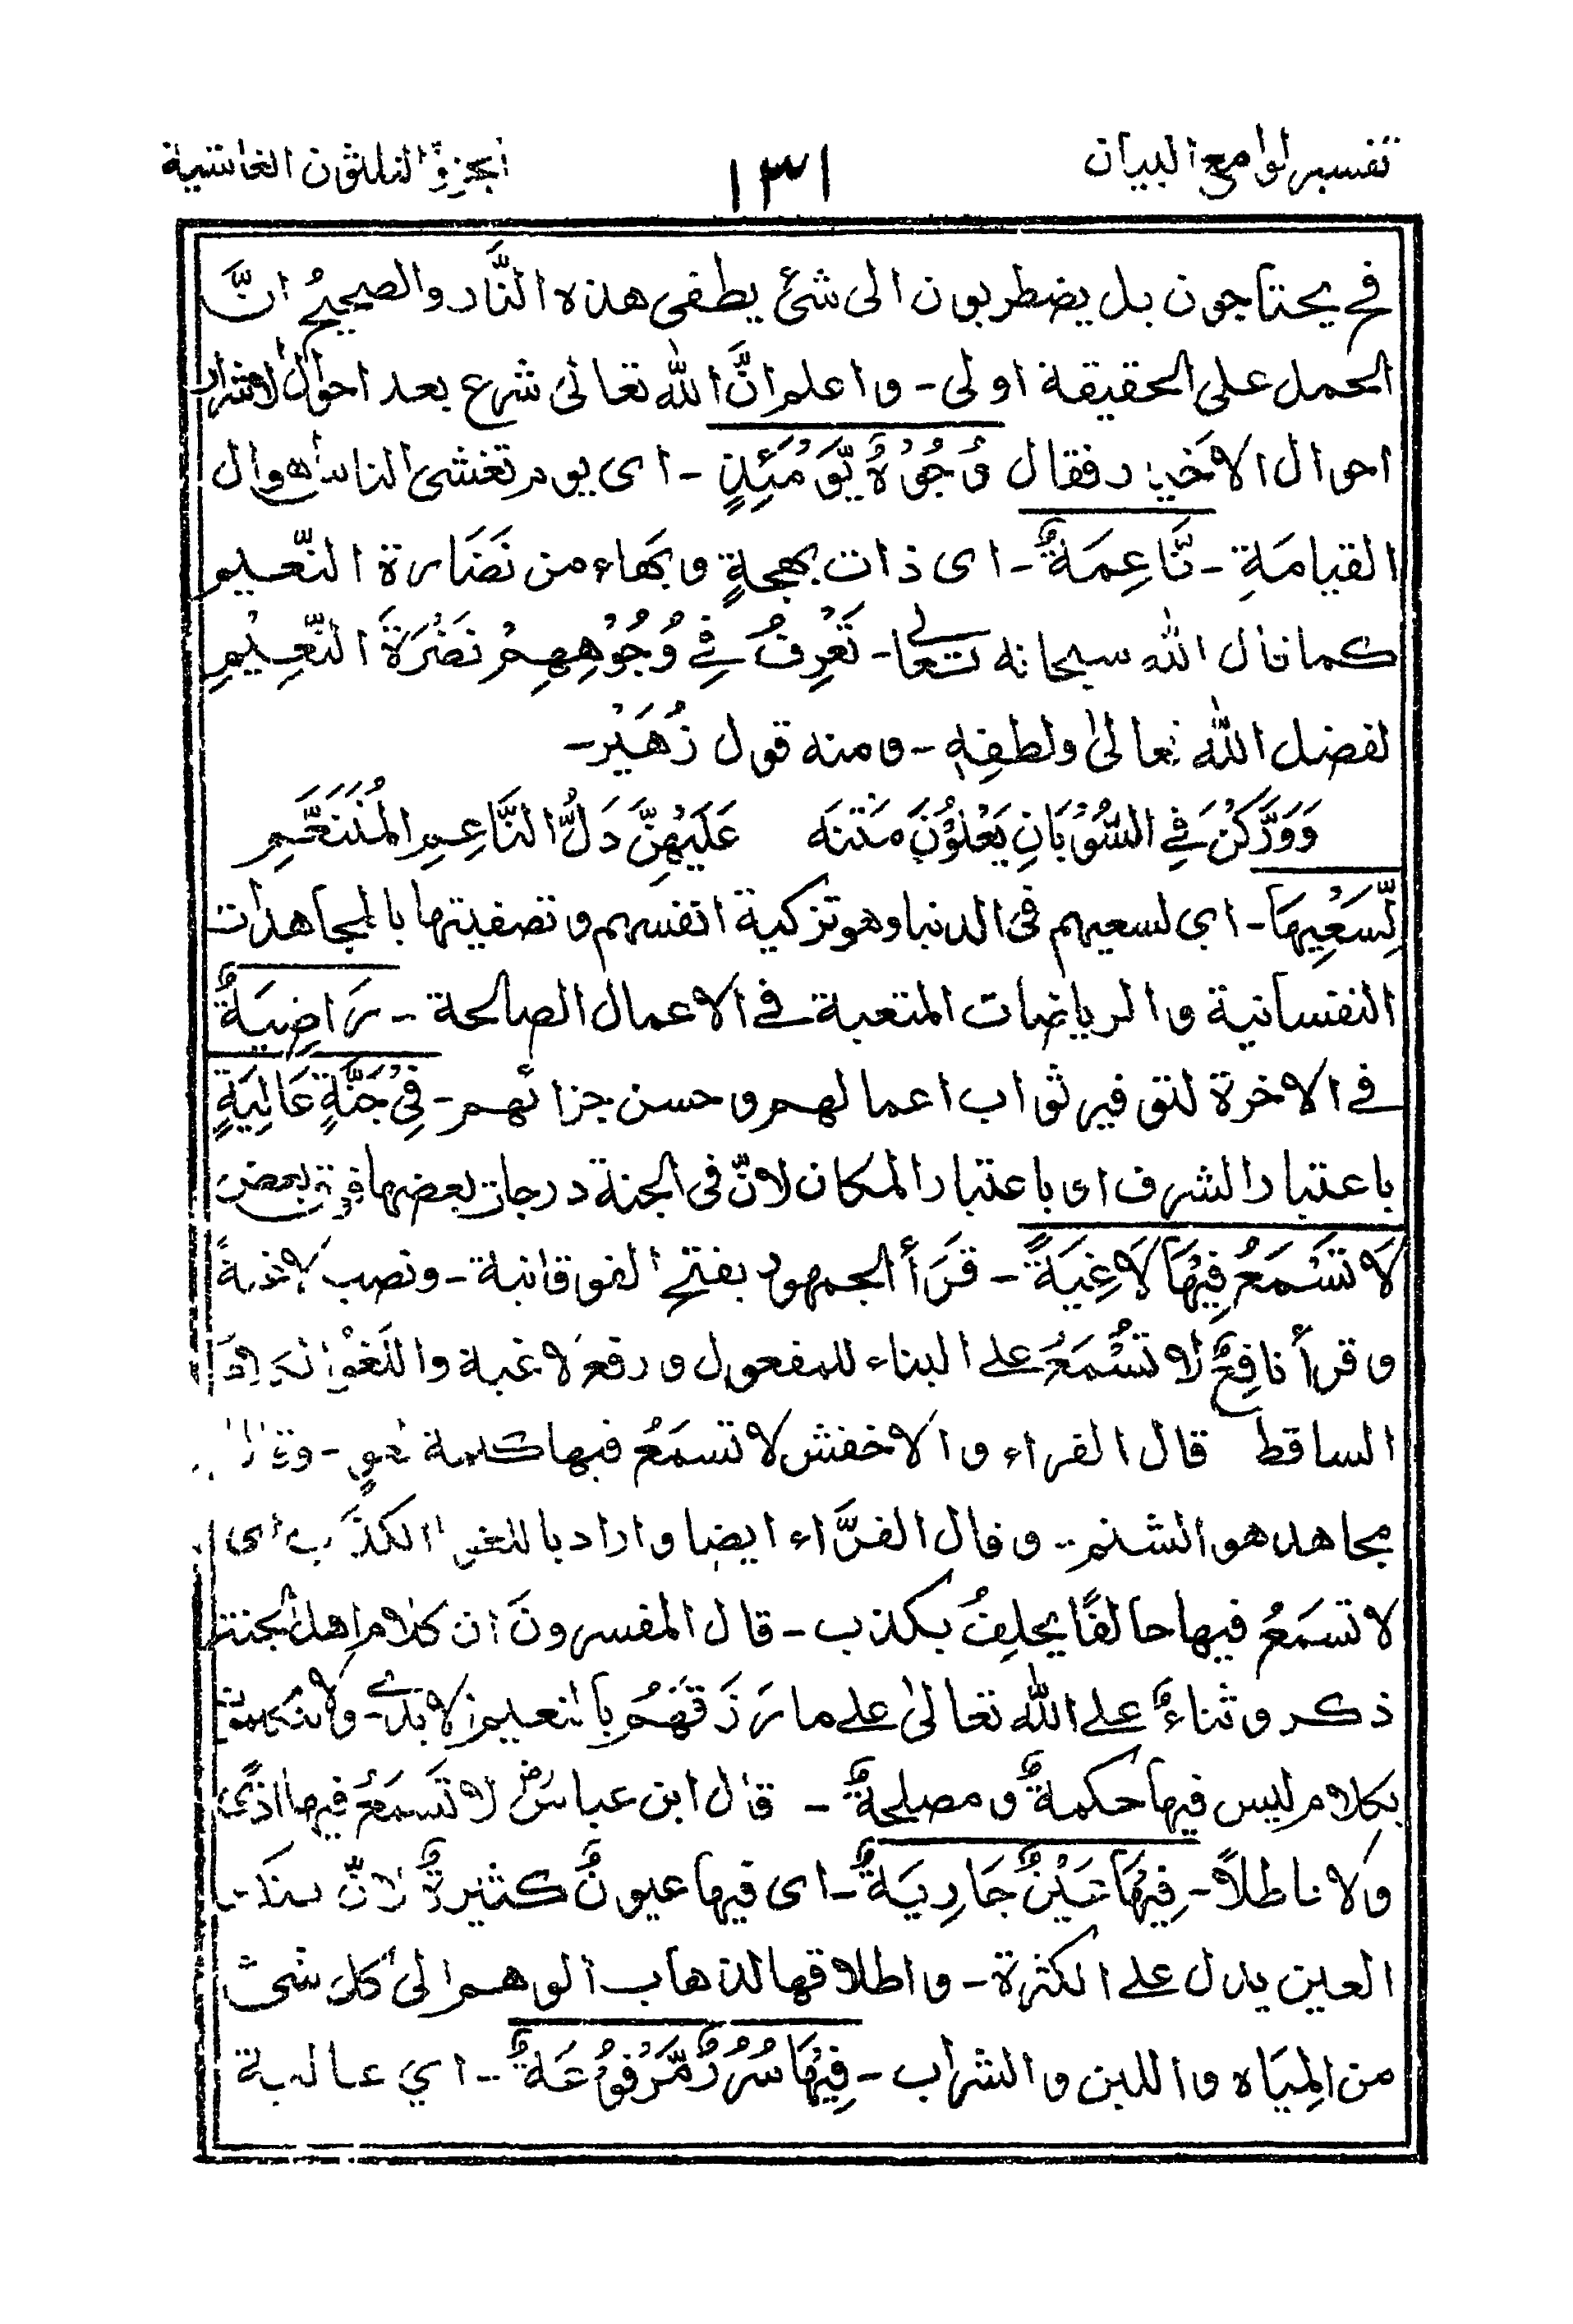 تفسير لوامع البيان
١٣١
الجزو الثلثون الغاشية
فح يحتاجون بل يضطربون الى شئ يطفى هذه النَّار والصحيحُ انَّ
الحمل على الحقيقة اولى - واعلم انَّ الله تعالى شرع بعد احوال الاشرار
احوال الاخيار فقال وُجُوْهٌ يَّوْمَئِذٍ - اى يوم تغشى الناس اهوال
القيامَةِ - نَّاعِمَةٌ - اى ذات بهجةٍ وبهاء من نَضَارة النّعيم
كما قال الله سبحانه تعالى - تَعْرِفُ فِي وُجُوْهِهِمْ نَضْرَةَ النَّعِيْمِ
لفضل الله تعالىٰ ولطفِهٖ - ومنه قول زُهَيْر -
وَوَرَّكْنَ فِي السُّوْبَانِ يَعْلُوْنَ مَتْنَه عَلَيْهِنَّ دَلُّ النَّاعِمِ المُتَنَعَّمِ
لِّسَعْيِهَا - اى لسعيهم فى الدنيا وهو تزكية انفسهم وتصفيتها بالمجاهدات
النفسانية والرياضات المتعبة في الاعمال الصالحة - رَاضِيَةٌ
في الاخرة لتوفير ثواب اعمالهم وحسن جزائهم - فِيْ جَنَّةٍ عَالِيَةٍ
باعتبار الشرف او باعتبار المكان لانّ فى الجنة درجات بعضها فوق بعض
لَا تَسْمَعُ فِيْهَا لَاغِيَةً - قَرَأَ الجمهور بفتح الفوقانية - ونصب لاغية
وقرأ نافِعٌ لا تُسْمَعُ على البناء للمفعول ورفع لاغية واللَغْوُ
الساقط قال الفراء والاخفش لا تسمَعُ فيها كلمة لغوٍ - وقال
مجاهد هو الشتم - وقال الفرَّاء ايضا واراد باللغو الكذب اى
لا تسمَعُ فيها حالفًا يحلِفُ بكذب - قال المفسرونَ ان كلام اهل الجنة
ذكر وثناءٌ على الله تعالىٰ على ما رَزَقَهُم بالنعيم الابدى - ولا يتكلمون
بكلام ليس فيها حكمةٌ ومصلحةٌ - قال ابن عباسؓ لا تَسمَعُ فيها اذًى
ولا باطلاً - فِيْهَا عَيْنٌ جَارِيَةٌ - اى فيها عيونٌ كثيرةٌ لانّ
العين يدل على الكثرة - واطلاقها لذهاب الوهم الىٰ كل شئ
من المِيَاه واللبن والشراب - فِيْهَا سُرُرٌ مَّرْفُوْعَةٌ - اي عالية